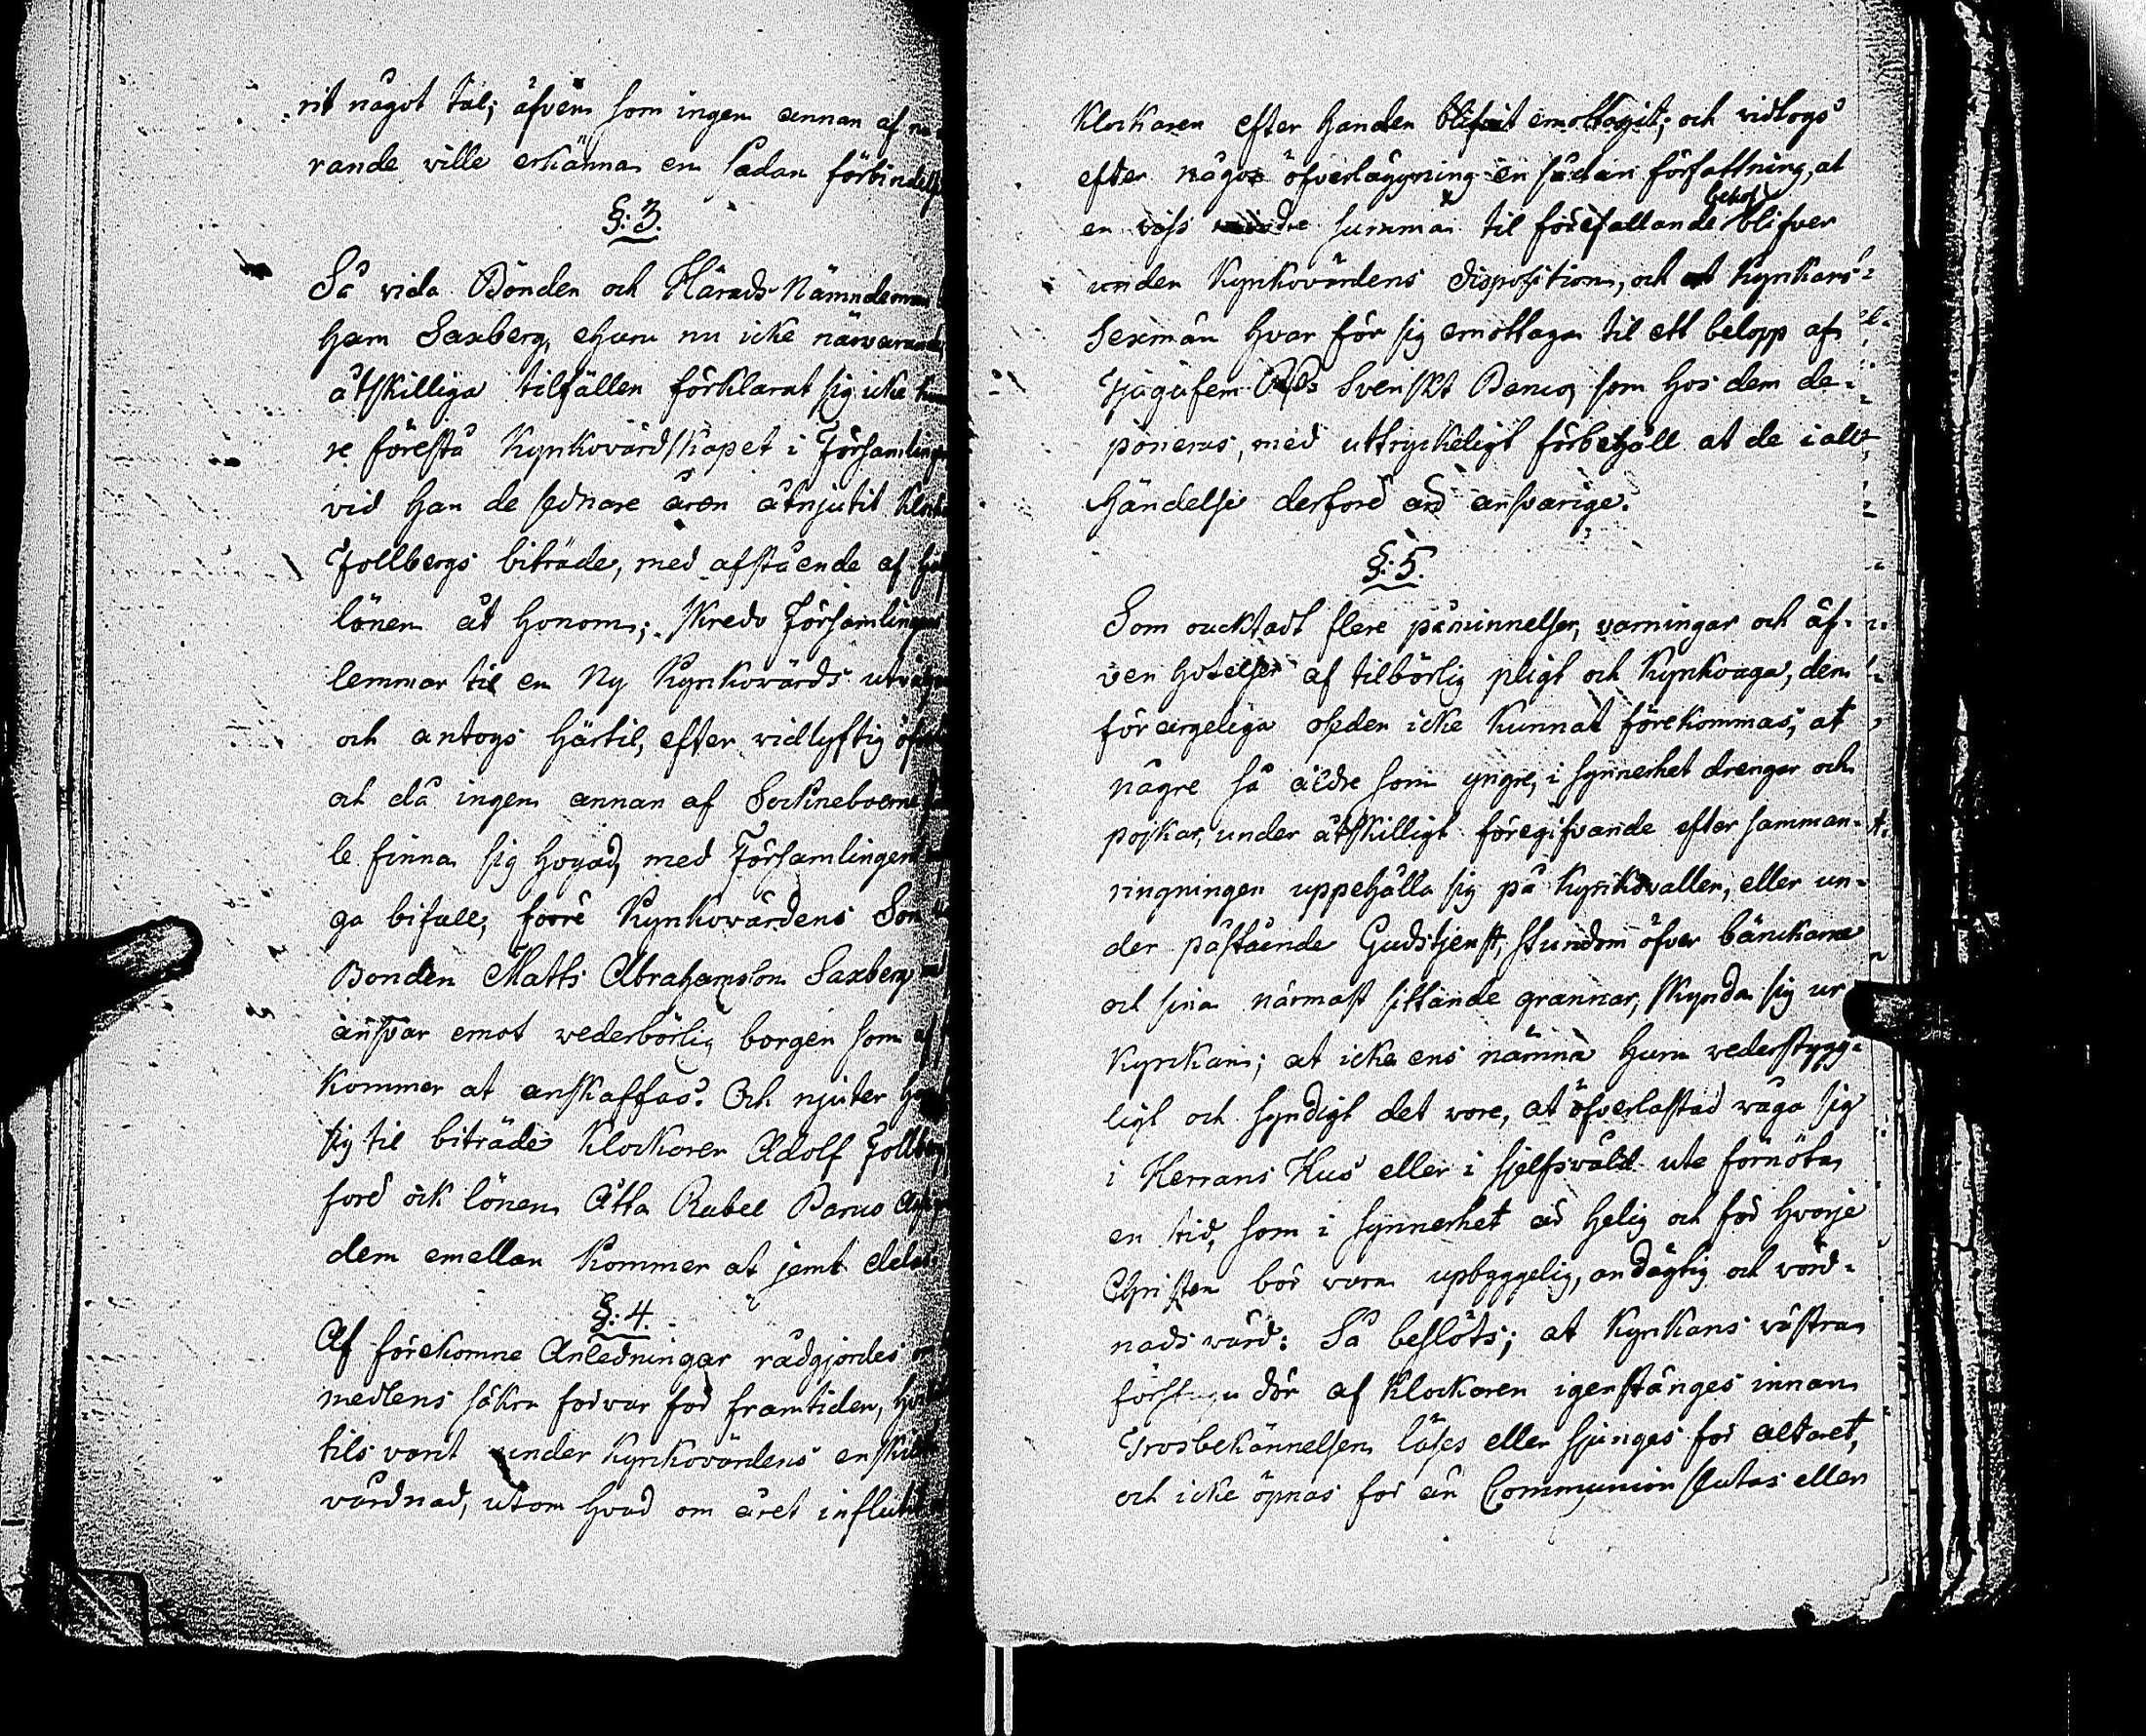 rit något tal; äfven som ingen annan af
rande wille erkänna en sådan förbindelse
§: 3.
Så vida Bonden och Härads Nämndeman
ham Saxberg, ehuru nu icke närvarande,
åtskilliga tilfällen förklarat sig icke
re förestå Kyrkovärdskapet i Församlingen
vid han de sednare åren åtnjutit
Follbergs biträde, med afstående af
lönen åt honom; skredo Församlingens
lemmar til en Ny Kyrkowärds
och antogs härtil, efter widlyftig
och då ingen annan af Sockneboerne
le finna sig hogad, med Församlingens
ga bifall, förre Kyrkowärdens Son
Bonden Matts Abrahamsson Saxberg
answar emot wederbörlig borgen som
kommer at anskaffas. Och njuter
sig til biträde Klockaren Adolf Follberg
före ock lönen Åtta Rubel Banco
dem emellan kommer at jemt delas.
§: 4.
Af förekomne Anledningar rådgjordes
medlens säkra förvar för framtiden,
tils varit under Kyrkovärdens enskilta
vårdnad, utom hvad om året influtit
Klockaren efter handen blifvit emottagit; och vidtogs
efter någon öfverläggning en sådan författning, at
en viss mindre summa til förefallande behof blifver
under Kyrkovärdens disposition, och at Kyrkans
Sexmän hvar för sig emottaga til ett belopp af
Tjugufem Svenskt Banco, som hos dem de-
poneras, med uttryckeligt förbehåll at de i all
händelse derföre äro answarige.
§: 5.
Som oacktadt flere påminnelser, varningar och äf-
ven hotelser af tilbörlig pligt och Kyrkoaga, den
förargeliga oseden icke kunnat förekommas, at
någre så äldre som yngre, i synnerhet drengar och
pojkar, under åtskilligt föregifvande efter samman-
ringningen uppehålla sig på Kyrkovallen, eller un-
der påstående Gudstjenst, stundom öfver bänckarne
och sina närmast sittande grannar, skynda sig ur
Kyrkan; at icke ens nämna huru wederstygg-
ligt och syndigt det wore, at öfverlastad wåga sig
i Herrans Hus eller i sjelfswåld ute förnöta
en tid, som i synnerhet är helig och för hvarje
Christen bör wara upbyggelig, andägtig och wörd-
nads wärd: Så beslöts; at Kyrkans wästra
förstugu dör af Klockaren igenstänges innan
Trosbekännelsen läses eller sjunges för altaret,
och icke öpnas för än Communion slutas eller